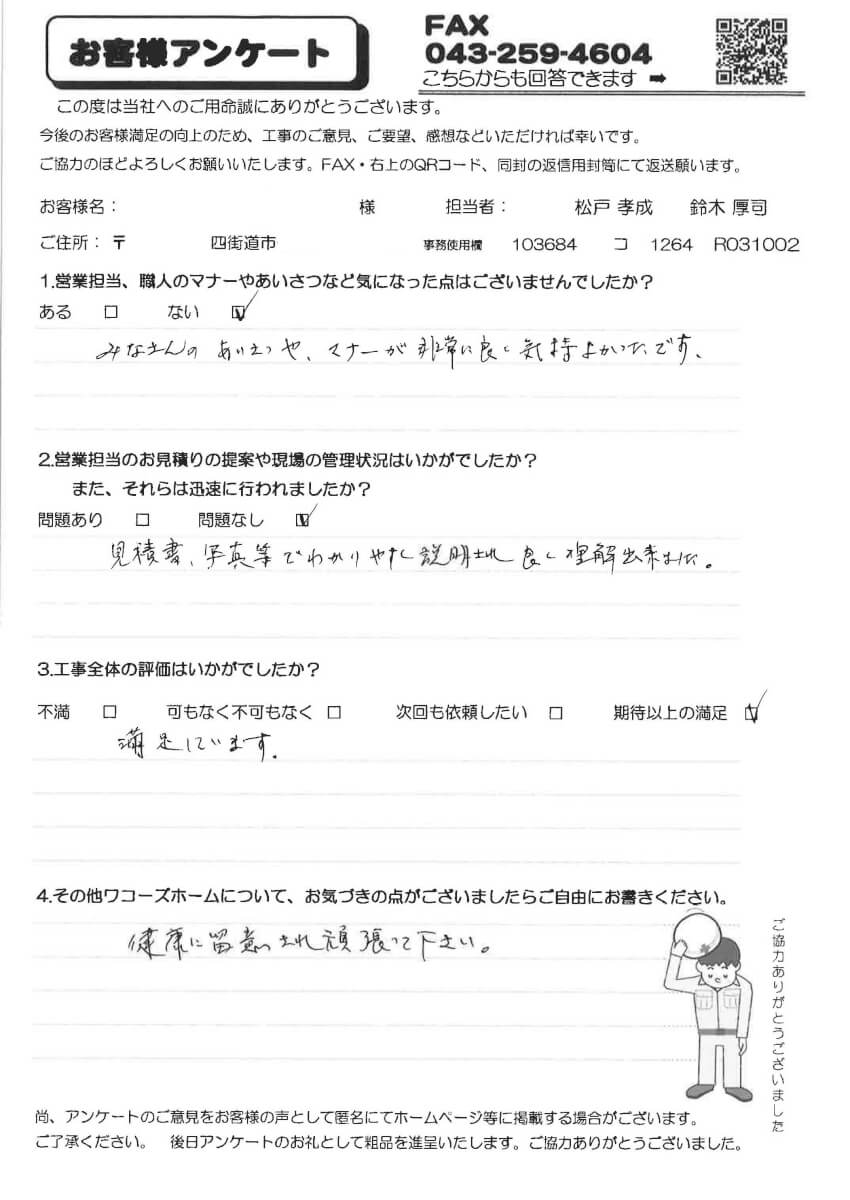 お客様アンケート
FAX
043-259-4604
こちらからも回答できます ➡
この度は当社へのご用命誠にありがとうございます。
今後のお客様満足の向上のため、工事のご意見、ご要望、感想などいただければ幸いです。
ご協力のほどよろしくお願いいたします。FAX・右上のQRコード、同封の返信用封筒にて返送願います。
お客様名： 様 担当者： 松戸 孝成 鈴木 厚司
ご住所：〒 四街道市 事務使用欄 103684 コ 1264 R031002
1.営業担当、職人のマナーやあいさつなど気になった点はございませんでしたか？
ある □ ない ☑
みなさんの あいさつや、マナーが 非常に良く気持よかったです、
2.営業担当のお見積りの提案や現場の管理状況はいかがでしたか？
また、それらは迅速に行われましたか？
問題あり □ 問題なし ☑
見積書、写真等でわかりやすく説明され 良く理解出来ました。
3.工事全体の評価はいかがでしたか？
不満 □ 可もなく不可もなく □ 次回も依頼したい □ 期待以上の満足 ☑
満足しています。
4.その他ワコーズホームについて、お気づきの点がございましたらご自由にお書きください。
健康に留意され頑張って下さい。
ご協力ありがとうございました
尚、アンケートのご意見をお客様の声として匿名にてホームページ等に掲載する場合がございます。
ご了承ください。 後日アンケートのお礼として粗品を進呈いたします。ご協力ありがとうございました。